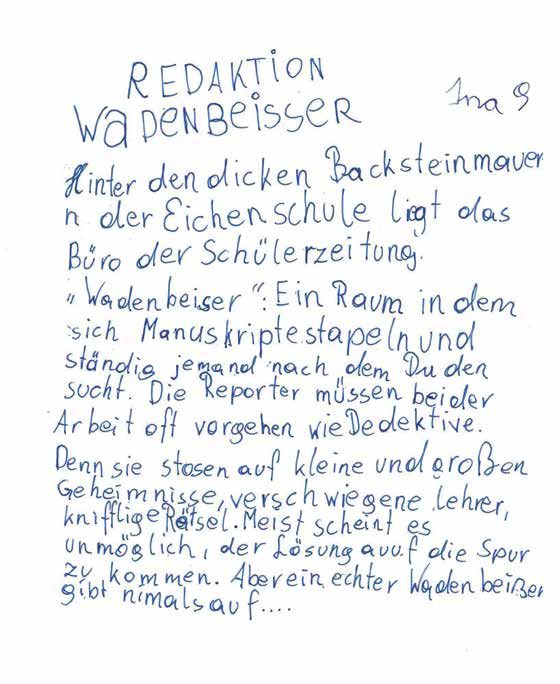 REDAKTION
Ina 9
WaDenBeisser
Hinter den dicken Backsteinmauer
n der Eichenschule liegt das
Büro der Schülerzeitung.
"Wadenbeiser": Ein Raum in dem
sich Manuskriptestapeln und
ständig jemand nach dem Du den
sucht. Die Reporter müssen bei der
Arbeit oft vorgehen wie Dedektive.
Denn sie stosen auf kleine und großen
Geheimnisse, verschwiegene Lehrer,
knifflige Rätsel. Meist scheint es
unmöglich, der Lösung auuf die Spur
zu kommen. Aber ein echter Wadenbeißer
gibt nimals auf....